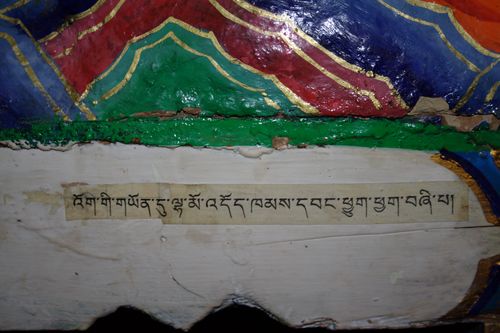 འོག་གི་གཡོན་དུ་ལྷ་མོ་འདོད་ཁམས་དབང་ཕྱུག་ཕྱག་བཞི་པ།